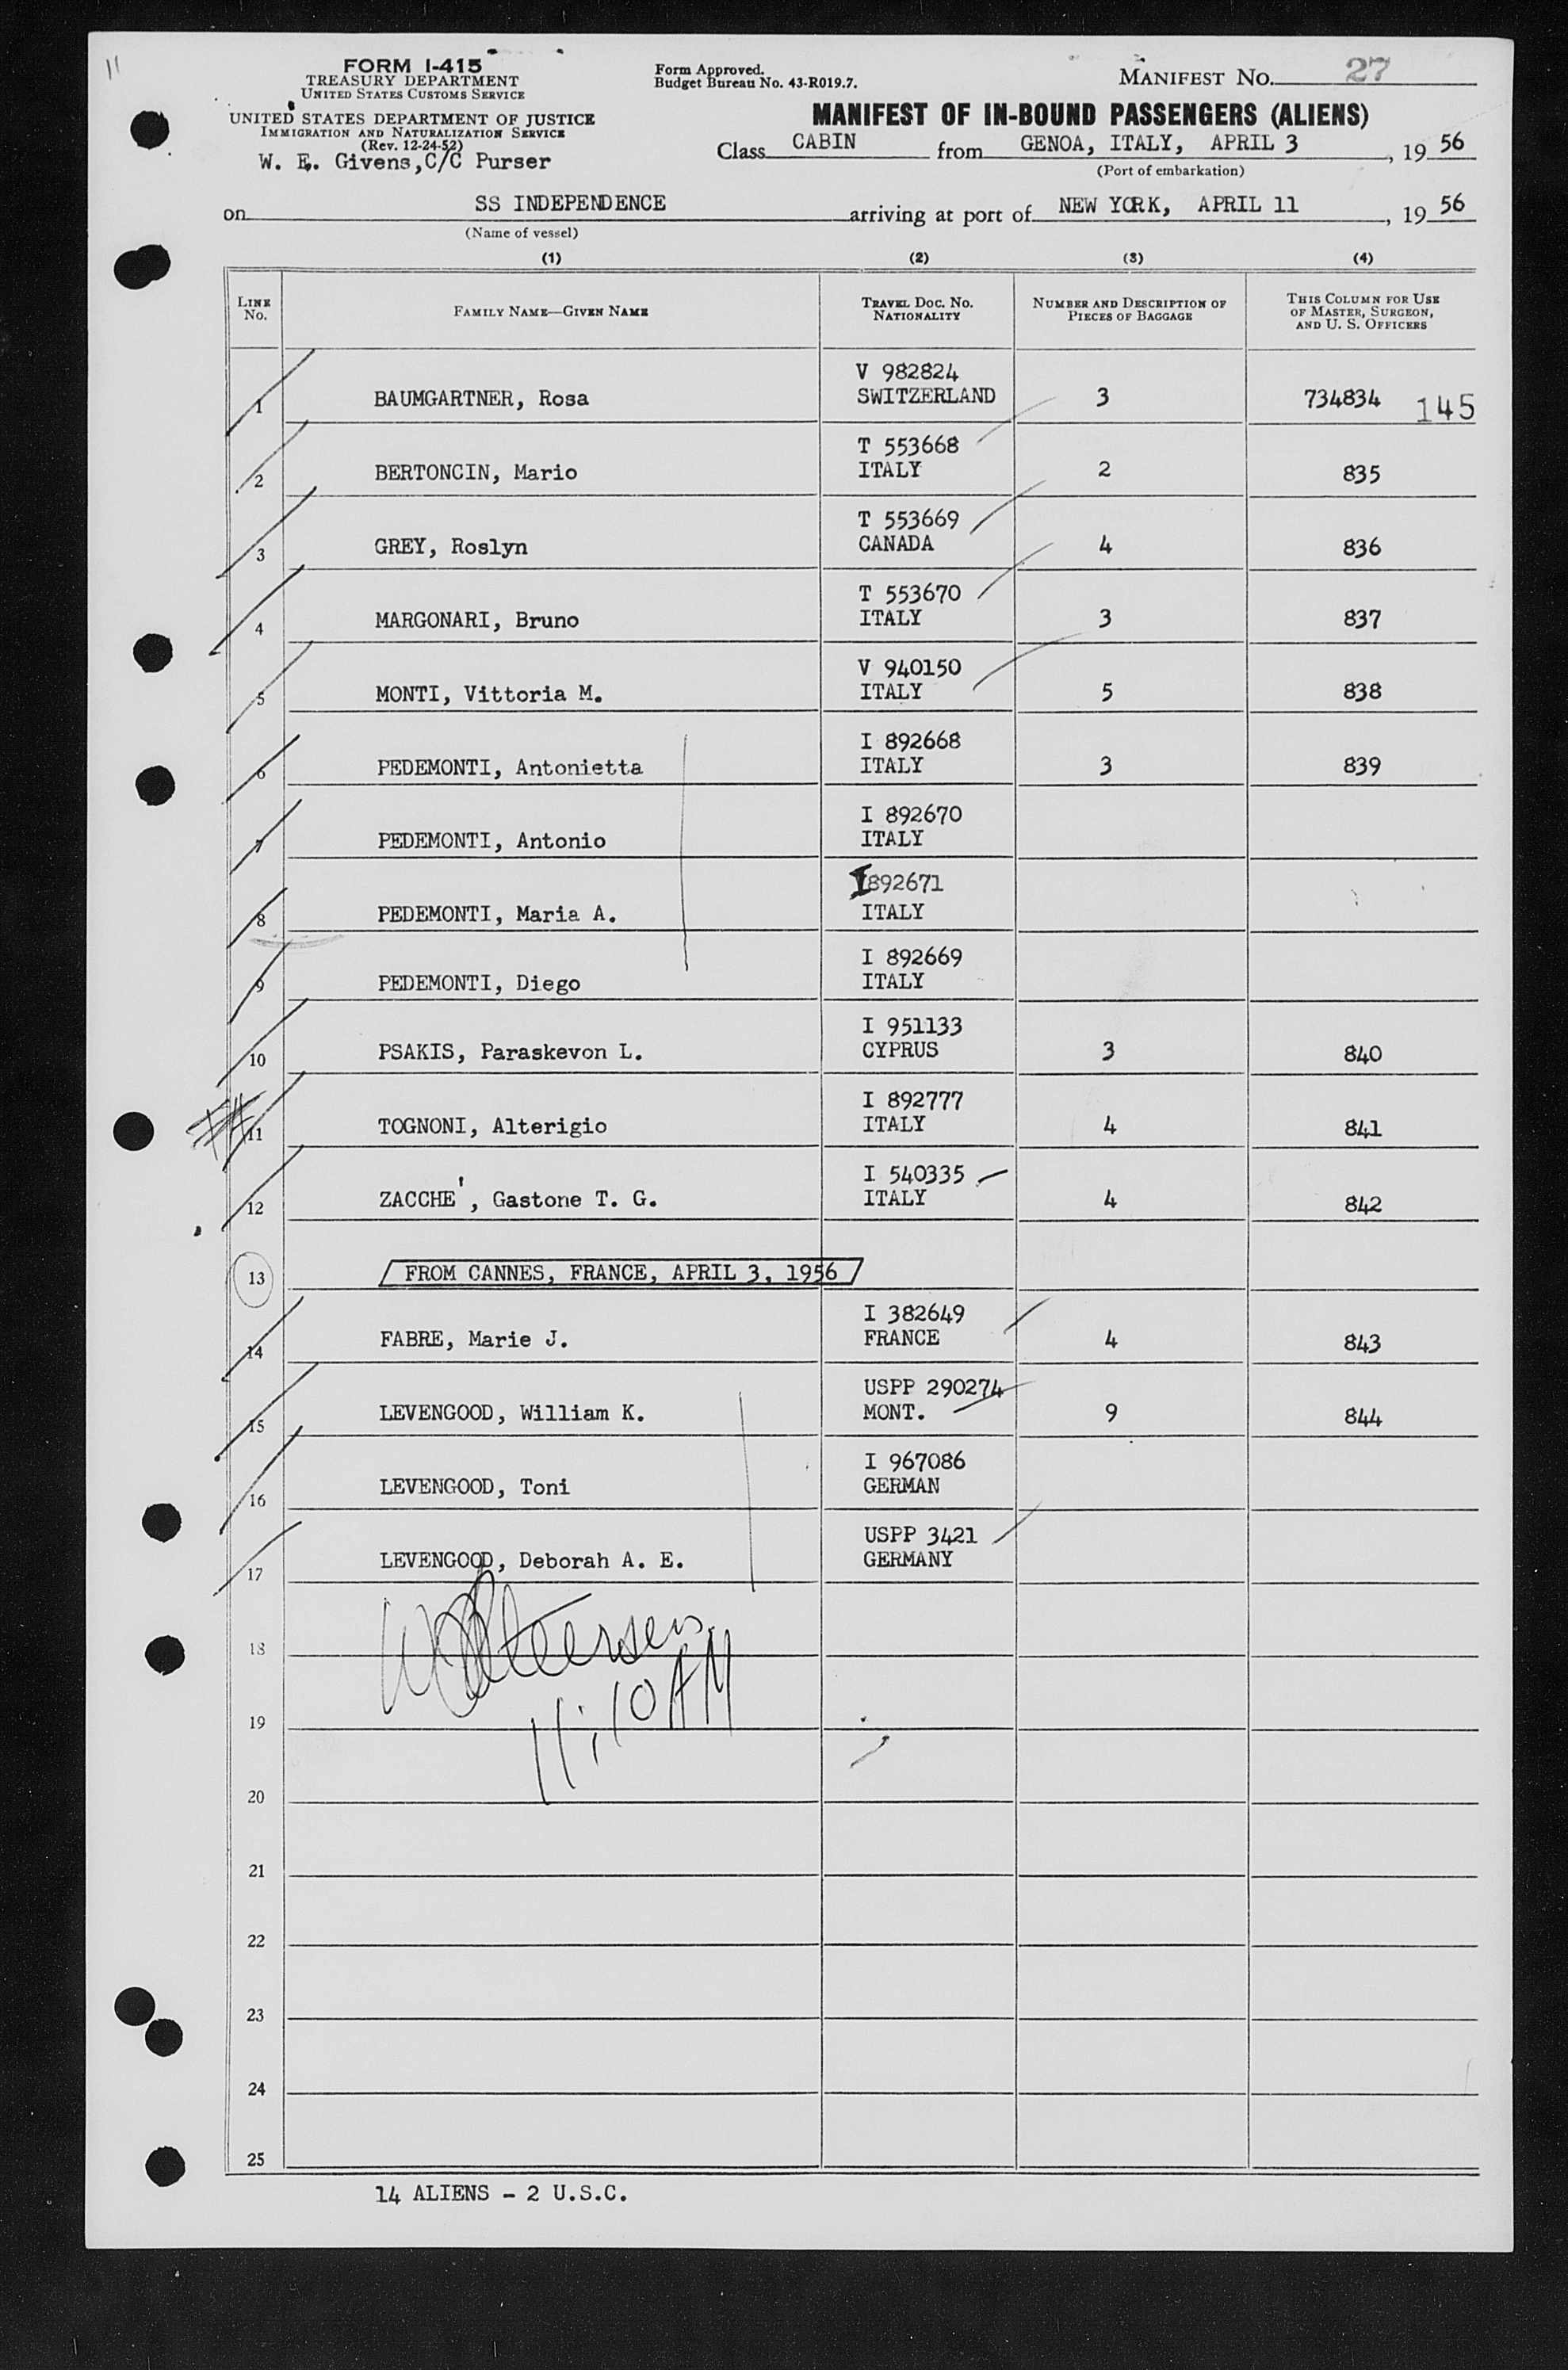 11
FORM I-415
TREASURY DEPARTMENT
UNITED STATES CUSTOMS SERVICE
UNITED STATES DEPARTMENT OF JUSTICE
IMMIGRATION AND NATURALIZATION SERVICE
(Rev. 12-24-52)
W. E. Givens,C/C Purser
Form Approved.
Budget Bureau No. 43-R019.7.
MANIFEST NO. 27
MANIFEST OF IN-BOUND PASSENGERS (ALIENS)
Class CABIN from GENOA, ITALY, APRIL 3, 19 56
(Port of embarkation)
on SS INDEPENDENCE arriving at port of NEW YORK, APRIL 11, 19 56
(Name of vessel)
(1) (2) (3) (4)
LINE No. FAMILY NAME—GIVEN NAME TRAVEL DOC. NO. NATIONALITY NUMBER AND DESCRIPTION OF PIECES OF BAGGAGE THIS COLUMN FOR USE OF MASTER, SURGEON, AND U. S. OFFICERS
V 982824
1 BAUMGARTNER, Rosa SWITZERLAND 3 734834 145
T 553668
2 BERTONCIN, Mario ITALY 2 835
T 553669
3 GREY, Roslyn CANADA 4 836
T 553670
4 MARGONARI, Bruno ITALY 3 837
V 940150
5 MONTI, Vittoria M. ITALY 5 838
I 892668
6 PEDEMONTI, Antonietta ITALY 3 839
I 892670
7 PEDEMONTI, Antonio ITALY
I892671
8 PEDEMONTI, Maria A. ITALY
I 892669
9 PEDEMONTI, Diego ITALY
I 951133
10 PSAKIS, Paraskevon L. CYPRUS 3 840
I 892777
11 TOGNONI, Alterigio ITALY 4 841
I 540335
12 ZACCHE', Gastone T. G. ITALY 4 842
13 FROM CANNES, FRANCE, APRIL 3, 1956
I 382649
14 FABRE, Marie J. FRANCE 4 843
USPP 290274
15 LEVENGOOD, William K. MONT. 9 844
I 967086
16 LEVENGOOD, Toni GERMAN
USPP 3421
17 LEVENGOOD, Deborah A. E. GERMANY
18
11:10 AM
19
20
21
22
23
24
25
14 ALIENS - 2 U.S.C.